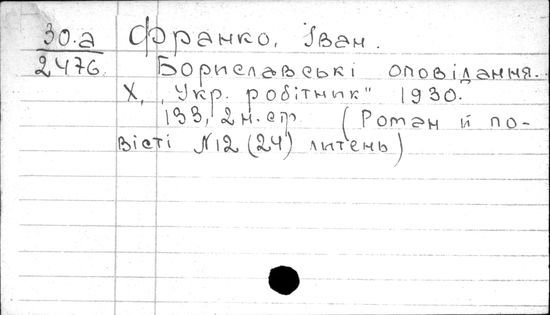 30.а Франко, Іван.
2476 Бориславські оповідання.
Х, „Укр. робітник" 1930.
133, 2 н. стр. (Роман й по-
вісті №12 (24) липень)